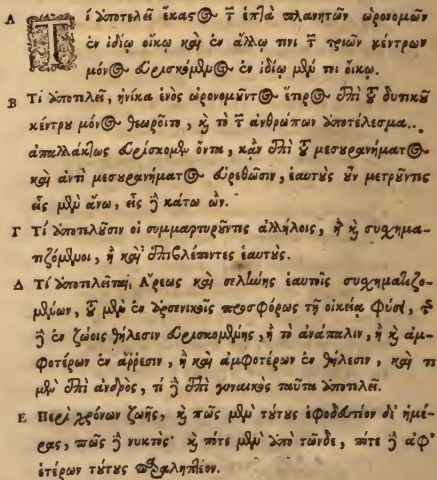 Α Τί ὑποτελεῖ ἕκαστος τῶν ἑπτὰ πλανητῶν ὡρονομῶν
ἐν ἰδίῳ οἴκῳ καὶ ἐν ἄλλῳ τινι τῶν τριῶν κέντρων
μόνος εὑρισκόμενος ἐν ἰδίῳ μέν τοι οἴκῳ.
Β Τί ὑποτελεῖ, ἡνίκα ἑνὸς ὡρονομοῦντος ἕτερος ἐπὶ τοῦ δυτικοῦ
κέντρου μόνος θεωροῖτο, καὶ τὸ τῶν ἀνθρώπων ὑποτέλεσμα..
ἀπαλλάκτως εὑρίσκομεν ὄντα, κἂν ἐπὶ τοῦ μεσουρανήματος
καὶ ἀντὶ μεσουρανήματος εὑρεθῶσιν, ἑαυτοὺς οὖν μετροῦντες
εἷς μὲν ἄνω, εἷς δὲ κάτω ὤν.
Γ Τί ὑποτελοῦσιν οἱ συμμαρτυροῦντες ἀλλήλοις, ἢ καὶ συσχημα-
τιζόμενοι, ἢ καὶ ἐπιβλέποντες ἑαυτούς.
Δ Τί ὑποτελεῖται Ἄρεως καὶ σελήνης ἑαυτοῖς συσχηματιζο-
μένων, τοῦ μὲν ἐν ἀρσενικοῖς προσφόρως τῇ οἰκείᾳ φύσει, τῆς
δὲ ἐν ζώοις θήλεσιν εὑρισκομένης, ἢ τὸ ἀνάπαλιν, ἢ καὶ ἀμ-
φοτέρων ἐν ἄρρεσιν, ἢ καὶ ἀμφοτέρων ἐν θήλεσιν, καὶ τί
μὲν ἐπὶ ἀνδρὸς, τί δὲ ἐπὶ γυναικὸς ταῦτα ὑποτελεῖ.
Ε Περὶ χρόνων ζωῆς, καὶ πῶς μὲν τούτους ἐφοδευτέον δι' ἡμέ-
ρας, πῶς δὲ νυκτός· καὶ πότε μὲν ὑπὸ τῶνδε, πότε δὲ ἀφ'
ἑτέρων τούτους παραληπτέον.